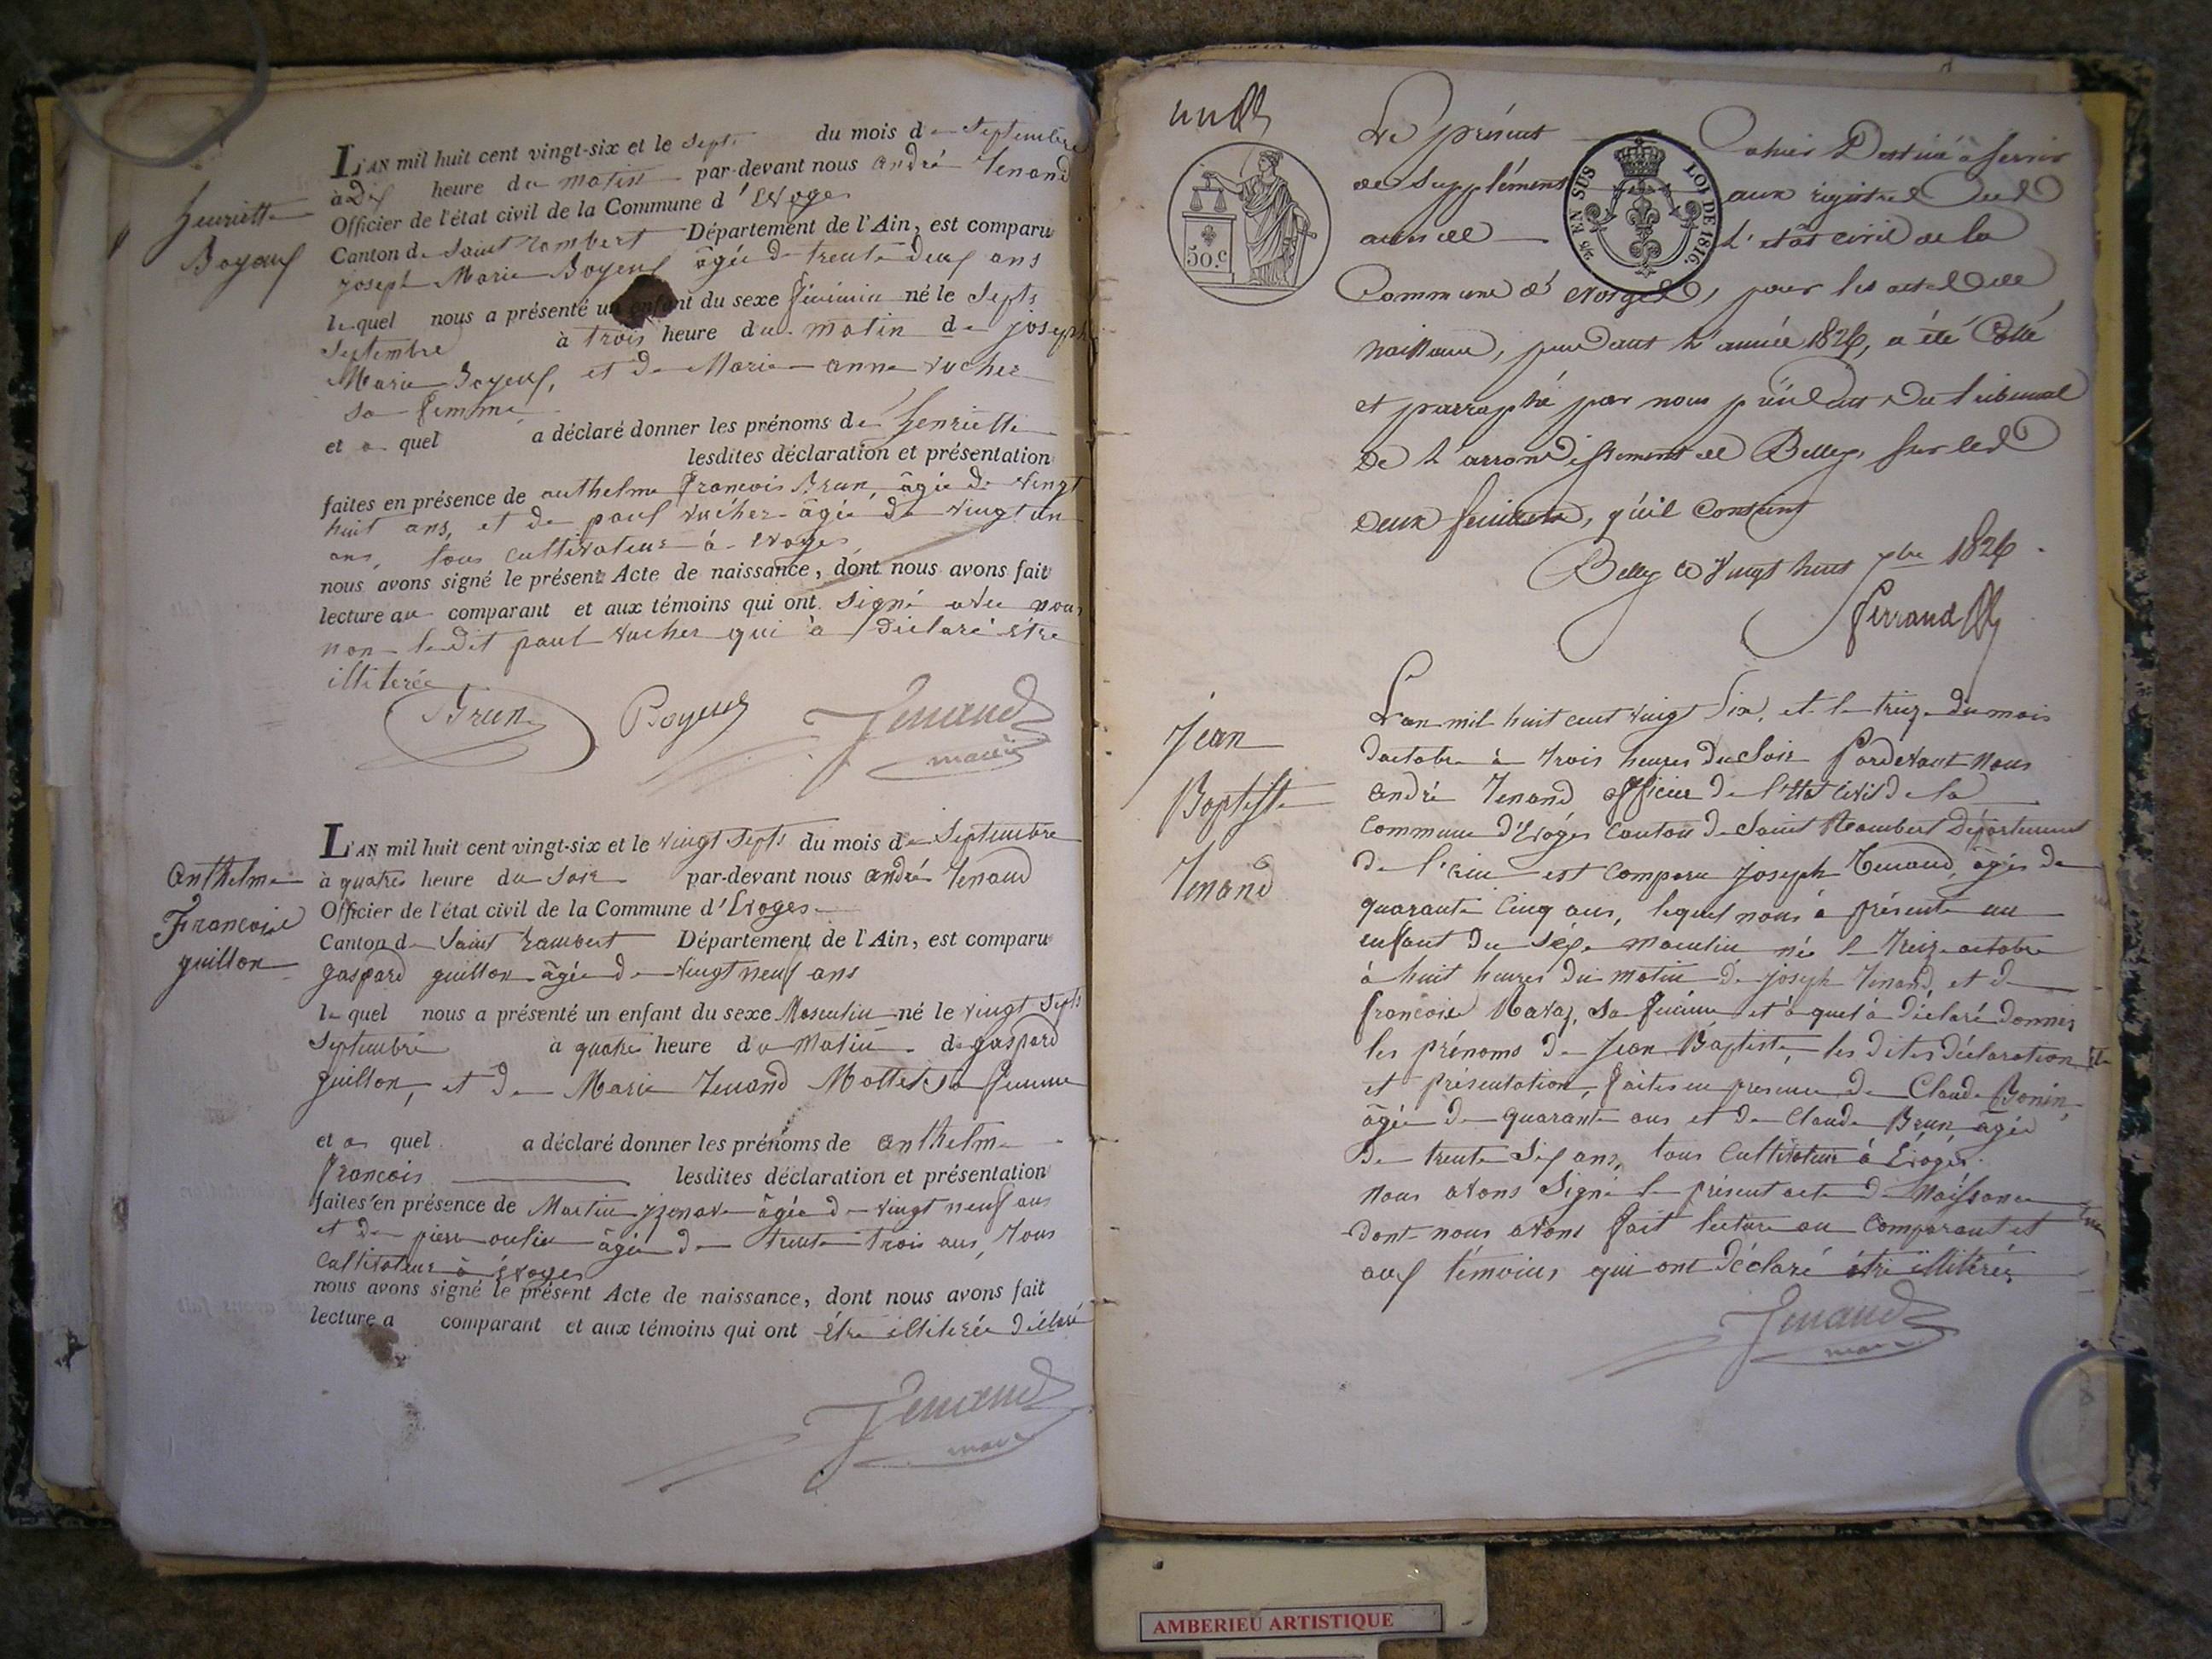 henriette
Boyeux
L'AN mil huit cent vingt-six et le septs du mois de septembre
à Dix heure du matin par-devant nous andré Tenand
Officier de l'état civil de la Commune d'Evoges
Canton de Saint rambert Département de l'Ain, est comparu
joseph Marie Boyeux âgée de trente deux ans
lequel nous a présenté un enfant du sexe féminin né le Septs
Septembre à trois heure du matin de joseph
Marie Boyeux, et de Marie anne vucher
sa femme
et a quel a déclaré donner les prénoms de henriette
lesdites déclaration et présentation
faites en présence de anthelme francois Brun, âgée de vingt
huit ans, et de paul vucher âgée de vingt un
ans, tous cultivateur à Evoges
nous avons signé le présent Acte de naissance, dont nous avons fait
lecture au comparant et aux témoins qui ont signé avec nous
non le dit paul vucher qui à déclaré être
illiterée
Brun Boyeux Tenand
maire
Anthelme
Francoise
guillon
L'AN mil huit cent vingt-six et le vingt septs du mois de Septembre
à quatres heure du soir par-devant nous André Tenand
Officier de l'état civil de la Commune d'Evoges
Canton de Saint rambert Département de l'Ain, est comparu
gaspard guillon âgée de vingt neuf ans
lequel nous a présenté un enfant du sexe Masculin né le vingt Septs
Septembre à quatre heure du Matin de gaspard
guillon, et de Marie Tenand Mollet sa femme
et a quel a déclaré donner les prénoms de anthelme
francois lesdites déclaration et présentation
faites en présence de Martin âgée de vingt neuf ans
et de piere âgée de trente trois ans, Tous
Cultivateur à Evoges
nous avons signé le présent Acte de naissance, dont nous avons fait
lecture a comparant et aux témoins qui ont être illiterée déclaré
Tenand
maire
50.c
2/5 EN SUS
LOI DE 1816.
Le présent Cahier Destiné à servir
de supplément aux registres des
actes de L'état civil de la
Commune d'Evoges, pour les actes de
naissance, pendant L'année 1826, a été Coté
et parraphé par nous président du tribunal
de L'arrondissement de Belley, sur les
deux feuillets, qu'il contient
Belley le vingt huit 7bre 1826.
Ferrand
Jean
Baptiste
Tenand
L'an mil huit cent vingt Six, et le treize du mois
d'octobre à trois heures du Soir Pardevant Nous
André Tenand officier de l'Etat civil de la
Commune d'Evoges Canton de Saint Rambert Département
de l'ain est comparu joseph Tenand, âgés de
quarante Cinq ans, lequel nous à présenté un
enfant du sexe masculin né le treize octobre
à huit heures du matin de joseph Tenand, et de
francoise Ravaz, sa femme et à quel à déclaré donner
les prénoms de Jean Baptiste, les dites déclaration
et présentation, faites en presence de Claude Bonin,
âgée de quarante ans et de Claude Brun âgée
de trente Six ans, tous Cultivateur à Evoges.
Nous avons Signé le présent acte de Naissance
dont nous avons fait lecture au Comparant et
aux témoins qui ont déclaré être illiterés
Tenand
maire
AMBERIEU ARTISTIQUE